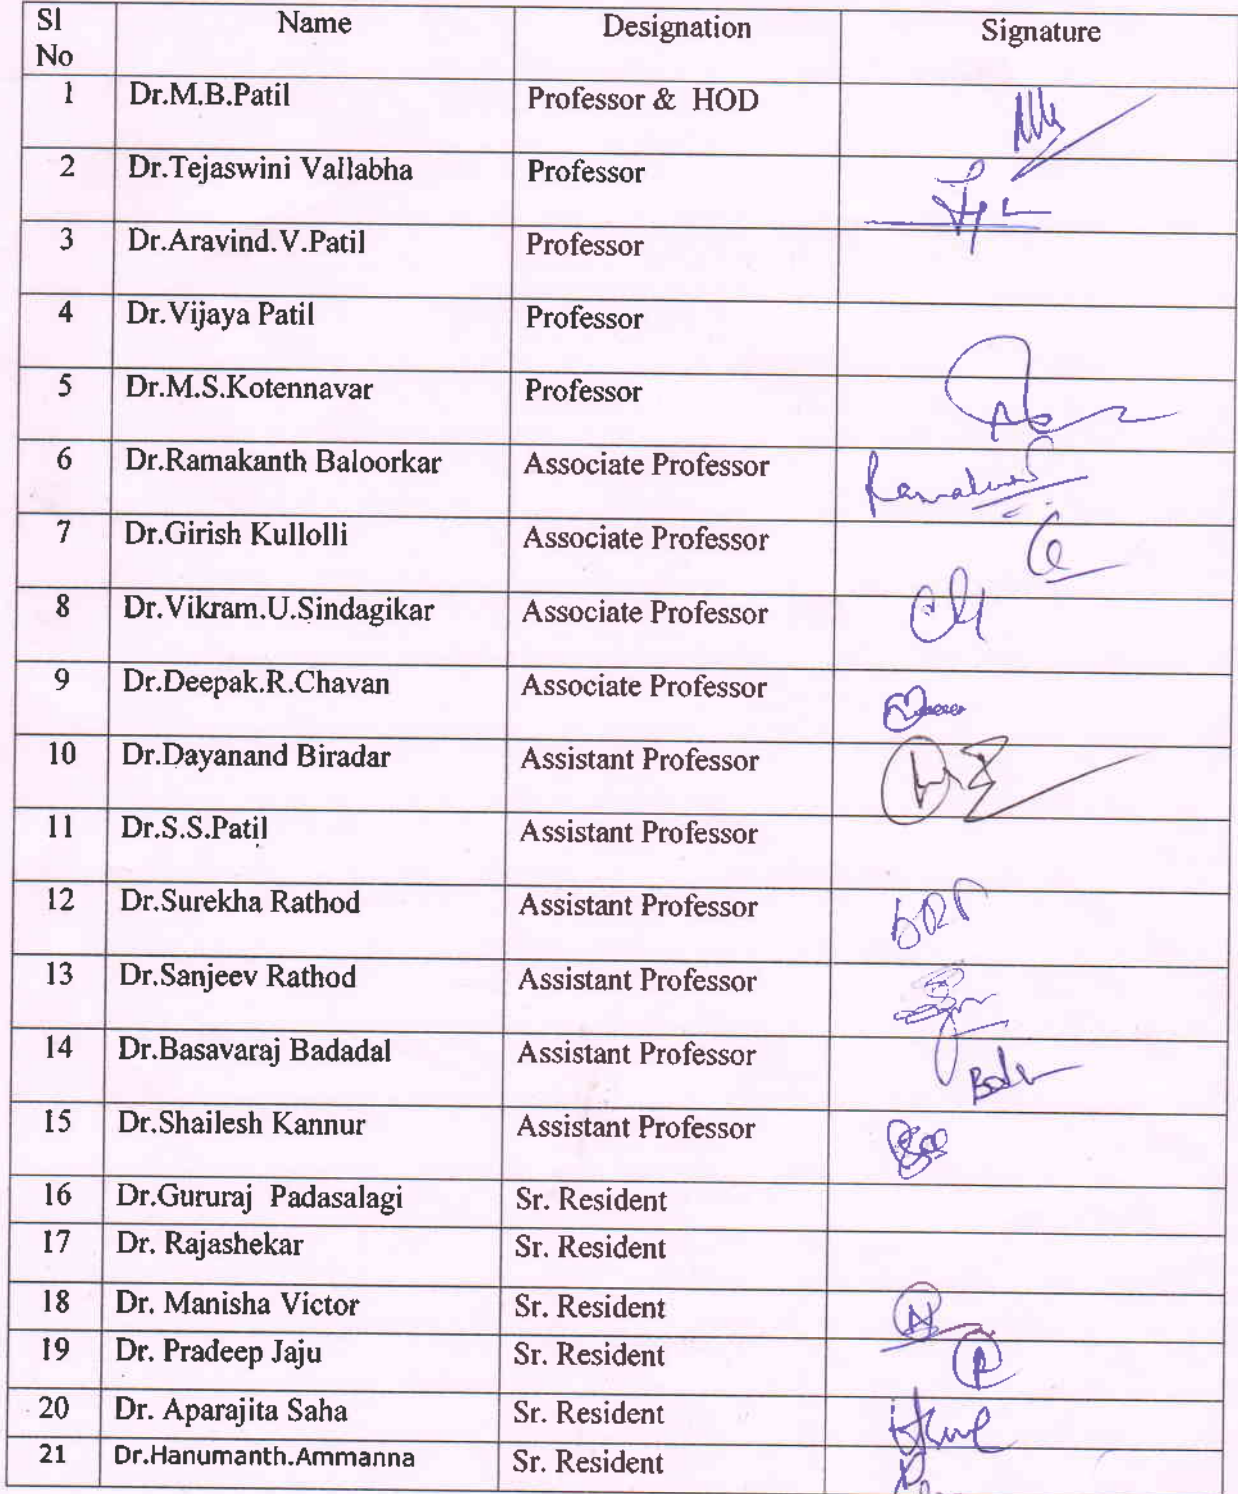 Sl No Name Designation Signature
1 Dr.M.B.Patil Professor & HOD
2 Dr.Tejaswini Vallabha Professor
3 Dr.Aravind.V.Patil Professor
4 Dr.Vijaya Patil Professor
5 Dr.M.S.Kotennavar Professor
6 Dr.Ramakanth Baloorkar Associate Professor
7 Dr.Girish Kullolli Associate Professor
8 Dr.Vikram.U.Sindagikar Associate Professor
9 Dr.Deepak.R.Chavan Associate Professor
10 Dr.Dayanand Biradar Assistant Professor
11 Dr.S.S.Patil Assistant Professor
12 Dr.Surekha Rathod Assistant Professor
13 Dr.Sanjeev Rathod Assistant Professor
14 Dr.Basavaraj Badadal Assistant Professor
15 Dr.Shailesh Kannur Assistant Professor
16 Dr.Gururaj Padasalagi Sr. Resident
17 Dr. Rajashekar Sr. Resident
18 Dr. Manisha Victor Sr. Resident
19 Dr. Pradeep Jaju Sr. Resident
20 Dr. Aparajita Saha Sr. Resident
21 Dr.Hanumanth.Ammanna Sr. Resident